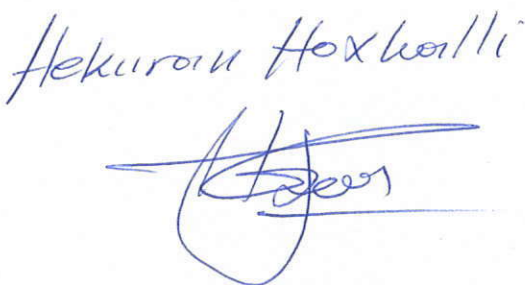 Hekuran Hoxhalli